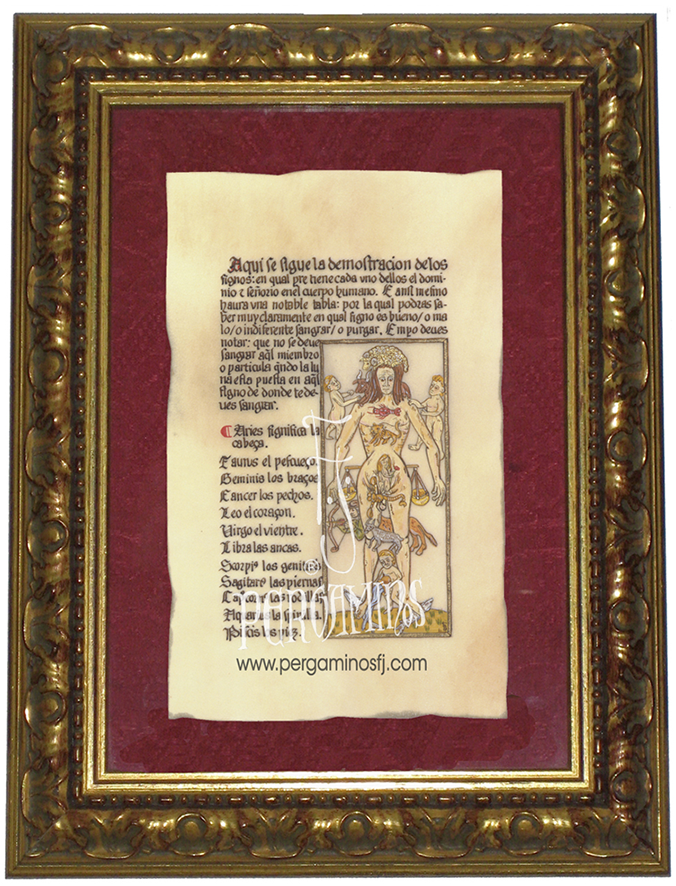 Aqui se sigue la demostracion de los
signos: en qual pte tiene cada vno dellos el domi-
nio c señorio enel cuerpo humano. E ansi mesmo
haura vna notable tabla: por la qual podras sa-
ber muy claramente en qual signo es bueno/o ma
lo/o indiferente sangrar/o purgar. Empo deues
notar: que no se deue
sangrar aq̃l miembro
o particula q̃ndo la lu
na esta puesta en aq̃l
signo de donde te de-
ues sangrar.
¶ Aries significa la
cabeça.
Taurus el pescueço.
Geminis los braços
Cancer los pechos.
Leo el coraçon.
Virgo el vientre.
Libra las ancas.
Scorpiº los genitales
Sagitarº las piernas
Capcorn las rodillas
Aquarius la spinilla.
Piscis los piez
PERGAMINOS
www.pergaminosfj.com